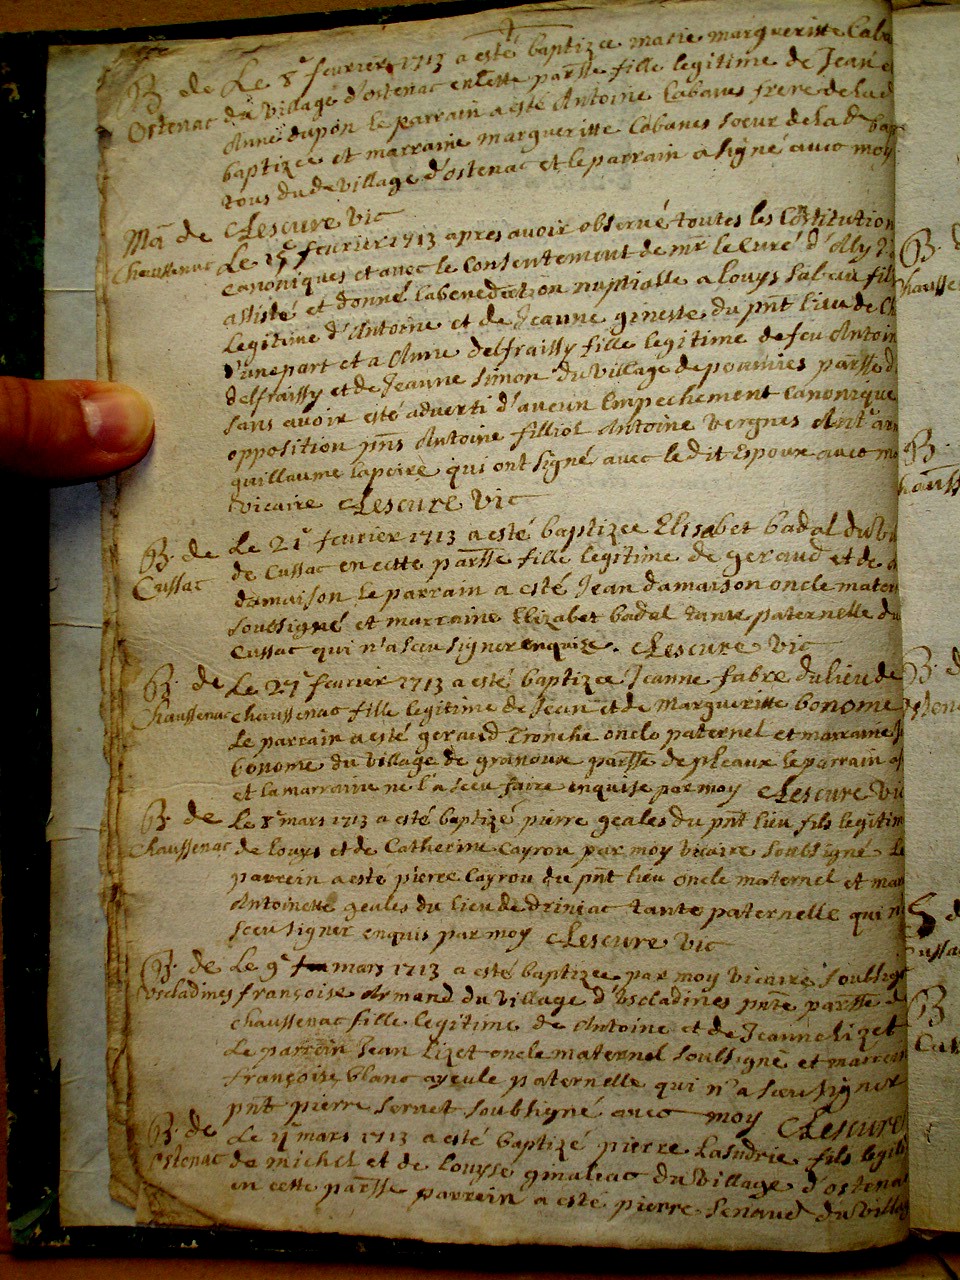 B. de Le 8e fevrier 1713 a esté baptizee marie margueritte Caba
Ostenac du village d'ostenac en cette parsse fille legitime de Jean e
Anne dupon le parrain a esté Antoine Cabanes frere de lad
baptizee et marraine margueritte Cabanes soeur de la de bap
tous dud village d'ostenac et le parrain a signé avec moy
Lescure vic
Ma de Le fevrier 1713 apres avoir observé toutes les Constitution
Chaussenac canoniques et avec le Consentement de mr le Curé d'Ally
assisté et donné la benediction nuptialle a louys fil
legitime d'Antoine et de Jeanne gineste du pnt lieu de Ch
d'une part et a Anne delfraissy fille legitime de feu Antoin
delfraissy et de Jeanne Simon du village de parsse d
sans avoir esté adverti d'aucun Empechement canonique
opposition pns Antoine filliol Antoine vergnes Ant
guillaume lapeire qui ont signé avec ledit Espoux avec mo
vicaire Lescure vic
B. de Le 21e fevrier 1713 a esté baptizee Elisabet badal du vi
Cussac de Cussac en cette parsse fille legitime de geraud et de
damaison le parrain a esté Jean damaison oncle mater
soussigné et marraine Elizabet badal tante paternelle du
Cussac qui n'a sceu signer enquize. Lescure vic
B. de Le 27e fevrier 1713 a esté baptizee Jeanne fabre du lieu de
Chaussenac chaussenac fille legitime de Jean et de Margueritte bonome
Le parrain a esté geraud Tronche oncle paternel et marraine J
bonome du village de granoux parsse de pleaux le parrain a
et la marraine ne l'a sceu faire enquise par moy Lescure vic
B. de Le 8e mars 1713 a esté baptizé pierre geales du pnt lieu fils legitim
Chaussenac de louys et de Catherine Cayrou par moy vicaire soubsigné Le
parrein a este pierre Cayrou du pnt lieu oncle maternel et mar
Antoinette geales du lieu de driniac tante paternelle qui n
sceu signer enquis par moy Lescure vic
B. de Le 9e mars 1713 a esté baptizee par moy vicaire soubsig
Uscladines françoise Armand du village d'Uscladines pnte parsse d
chaussenac fille legitime de Antoine et de Jeanne Lizet
Le parrein Jean Lizet oncle maternel soubsigné et marren
françoise blanc ayeule paternelle qui n'a sceu signer
pnt pierre servet soubsigné avec moy Lescure
B. de Le mars 1713 a esté baptizé pierre Lasudrie fils legiti
Ostenac de michel et de Louyse du village d'ostena
en cette parsse parrein a esté pierre Senaud du villa